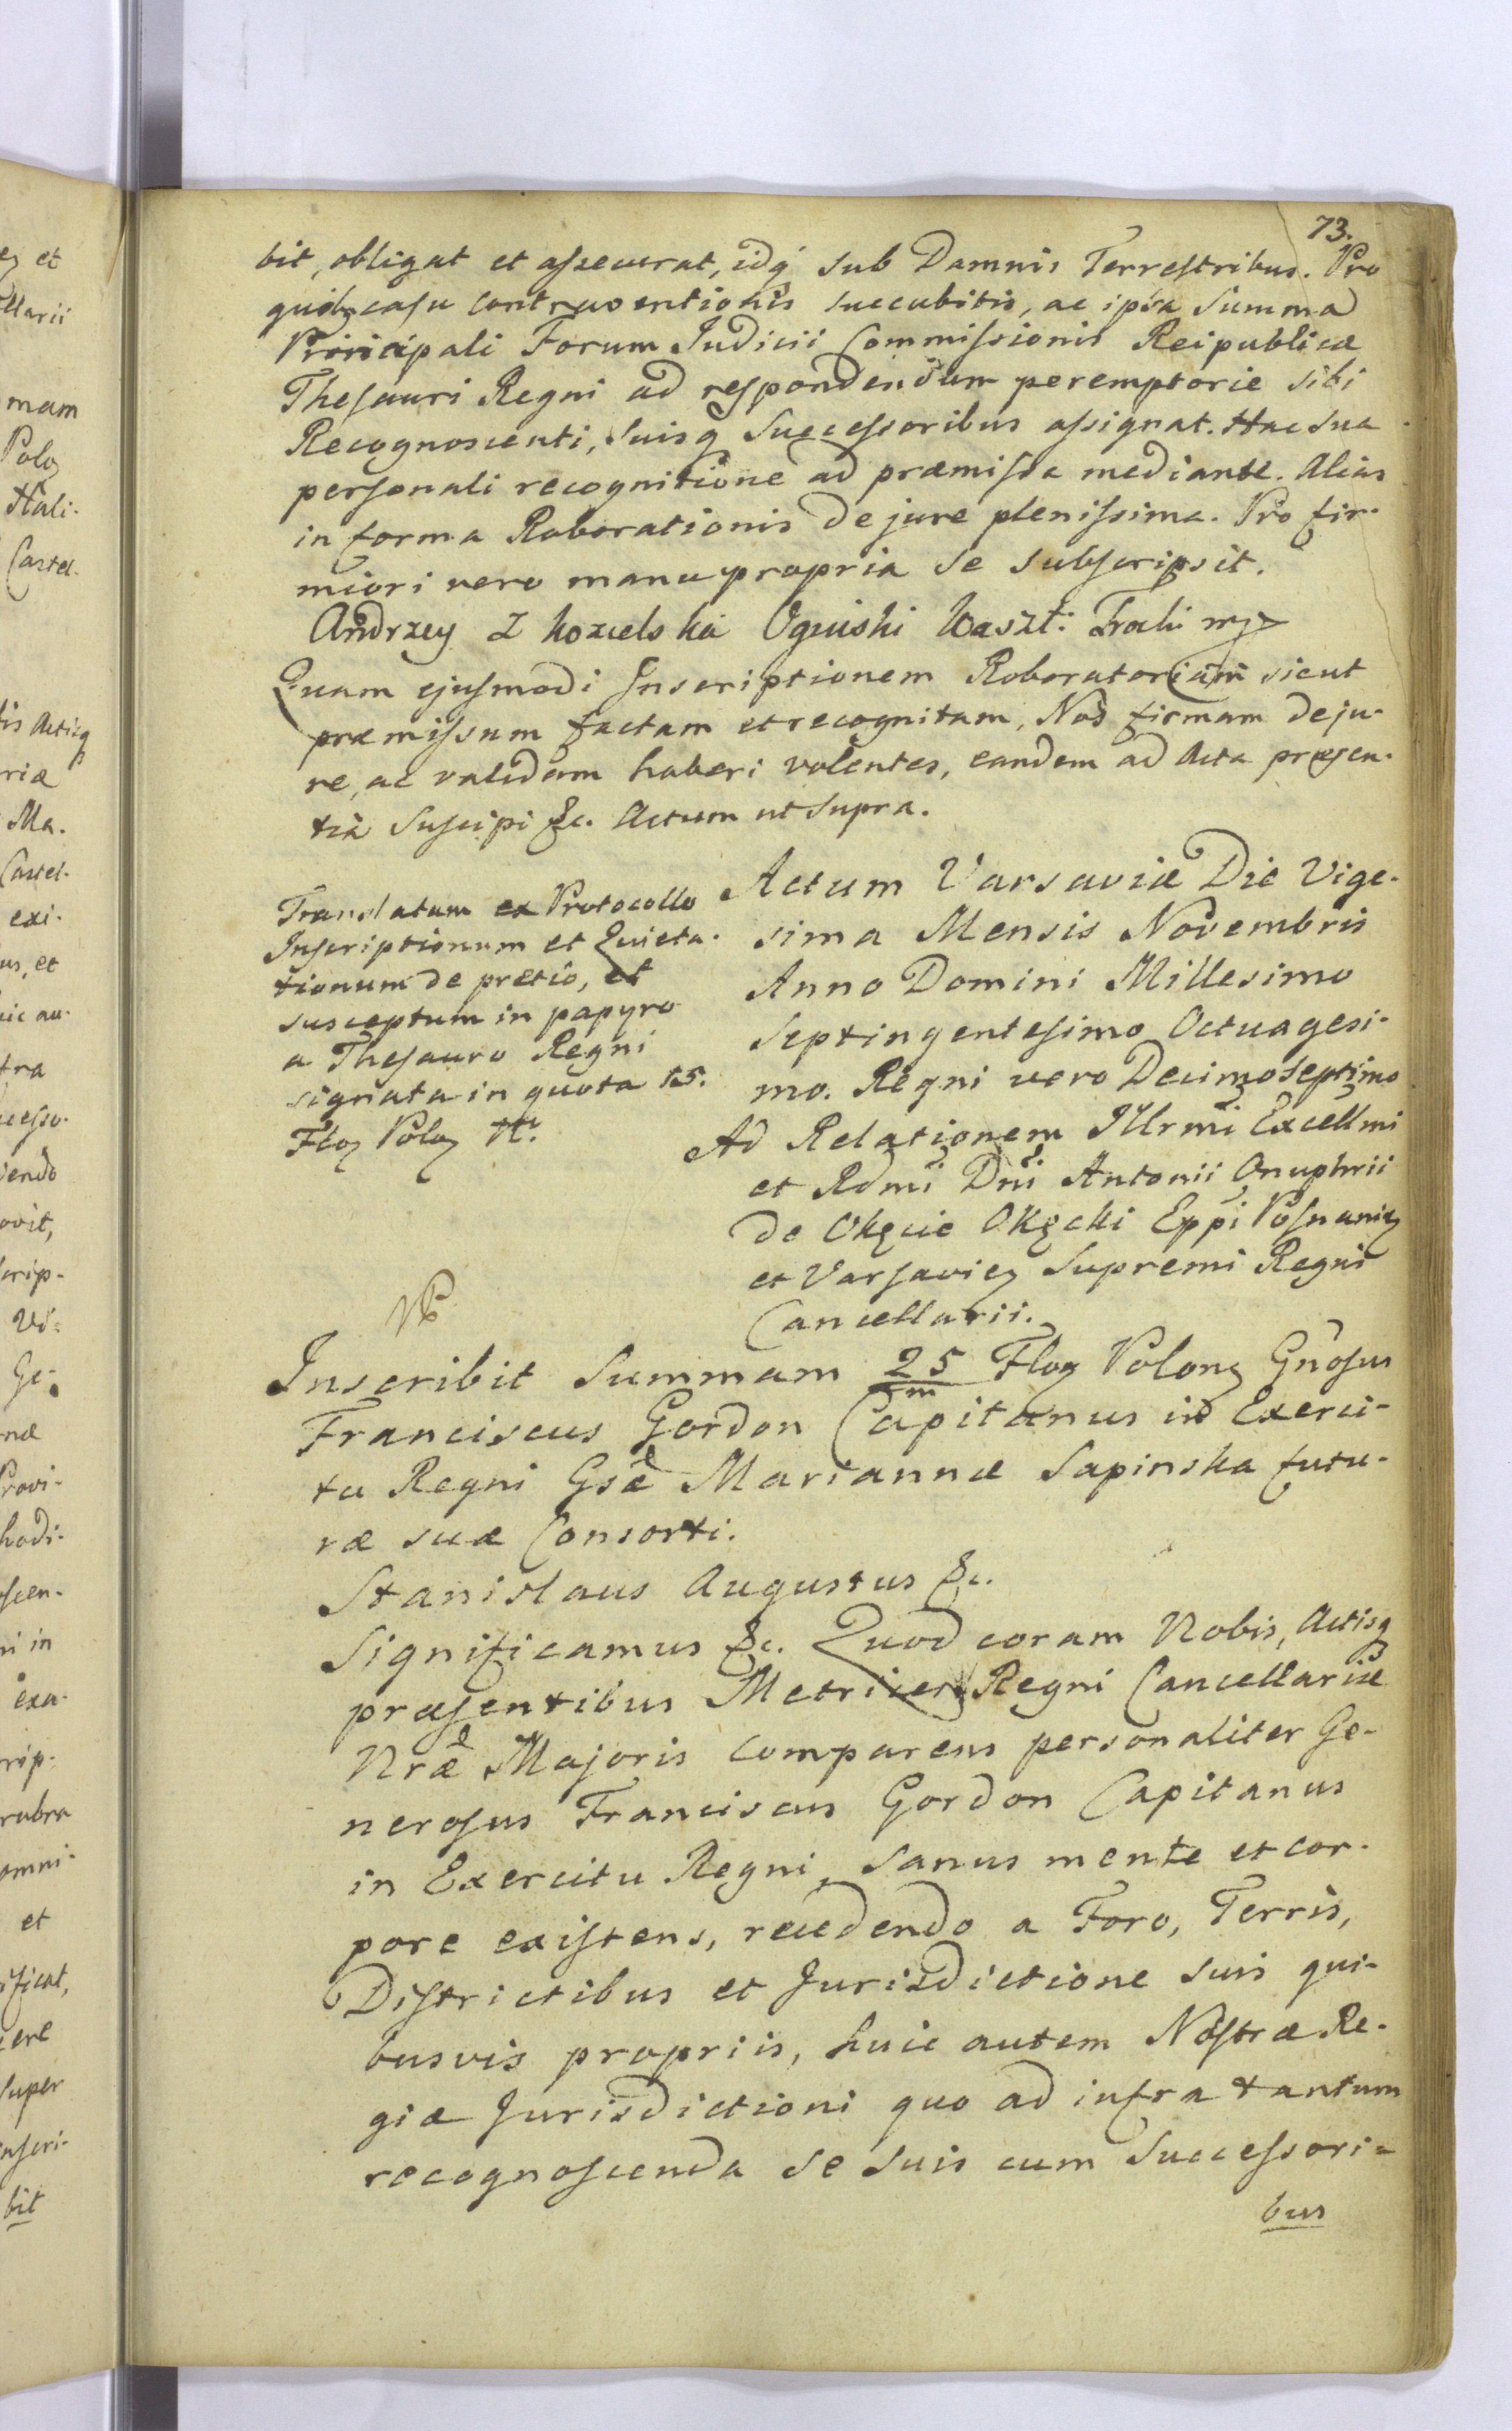 73.
bit, obligat et assecurat, idq sub Damnis Terrestribus. Pro
quibq casu contraventionis succubitis, ac ipsa Summa
Principali Forum Judicii Commissionis Reipublicæ
Thesauri Regni ad respondendum peremptorie sibi
Recognoscenti, suisq Successoribus assignat. Hac sua
personali recognitione ad præmissa mediante. Alias
in forma Roborationis de jure plenissima. Pro fir-
miori vero manu propria se subscripsit.
Andrzey Z Kozielska Oginski Kaszt: Trocki mp
Quam ejusmodi Inscriptionem Roboratoriam sicut
præmissum factam et recognitam, Nos firmam de ju-
re, ac validam haberi volentes, eandem ad Acta præsen-
tia Suscipi &c. Actum ut supra.
Translatum ex Protocollo
Inscriptionum et Quieta-
tionum de pretio, et
susceptum in papyro
a Thesauro Regni
signata in quota 15.
Floz Poloz
Actum Varsaviæ Die Vige-
sima Mensis Novembris
Anno Domini Millesimo
Septingentesimo Octuagesi-
mo. Regni vero Decimo Septimo
Ad Relationem Illrmi Excellmi
et Rdmi Dni Antonii Onuphrii
de Okęcie Okęcki Eppi Posnaniæ
et Varsaviæ Supremi Regni
Cancellarii.
NB
Inscribit Summam 25 Floz Polonz Gnosus
m
Franciscus Gordon Capitanus in Exerci-
tu Regni Gsæ Mariannæ Sapinska futu-
ræ suæ Consorti.
Stanislaus Augustus &c.
Significamus &c. Quod coram Nobis, Actisq
præsentibus Metrices Regni Cancellariæ
Nræ Majoris comparens personaliter Ge-
nerosus Franciscus Gordon Capitanus
in Exercitu Regni, sanus mente et cor-
pore existens, recedendo a Foro, Terris,
Districtibus et Jurisdictione suis qui-
busvis propriis, huic autem Nostræ Re-
giæ Jurisdictioni quo ad infra tantum
recognoscenda se suis cum Successori-
bus